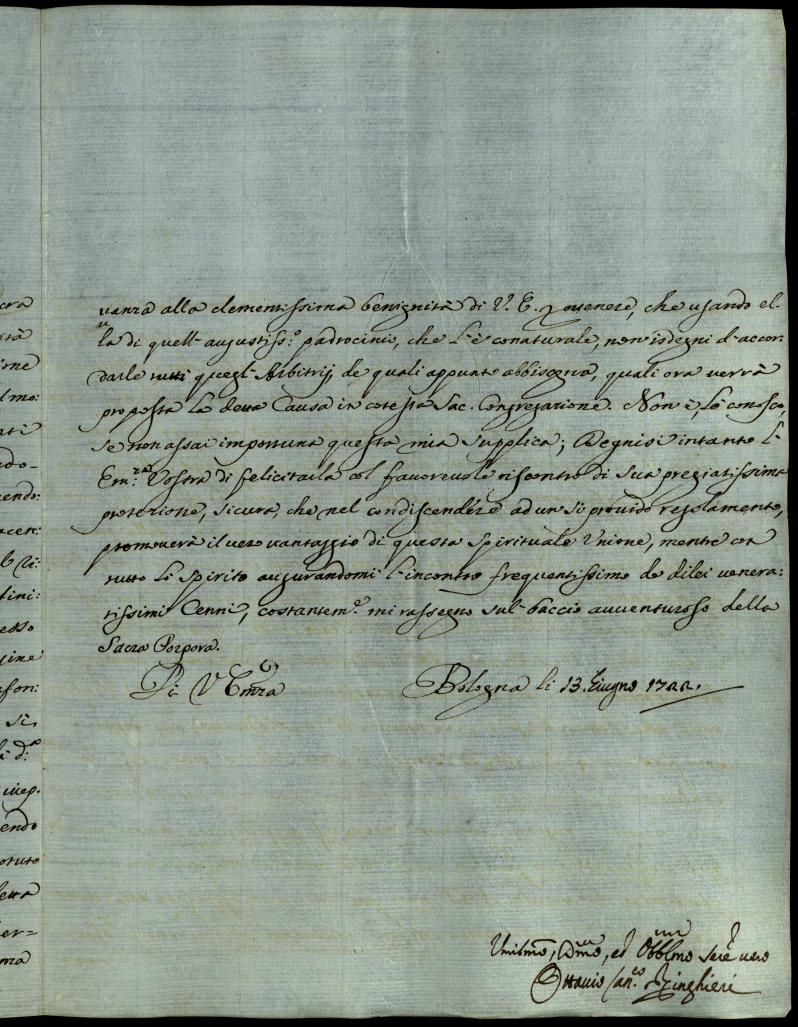 vanza alla clementissima benignità di V. E. ottenere, che usando el-
la di quell' augustiss.º padrocinio, che l'è conaturale, non isdegni d'accor-
darle tutti quegl' Arbitrij, de quali appunto abbisogna, quali ora verrà
proposta la detta Causa in cotesta Sac. Congregazione. Non è, lo conosco,
se non assai importuna questa mia supplica; Degnisi intanto l'
Em.za Vostra di felicitarla col favorevole riscontro di sua pregiatissima
protezione, sicura, che nel condiscendere ad un sì provido regolamento,
promoverà il vero vantaggio di questa Spirituale Unione, mentre con
tutto lo spirito augurandomi l'incontro frequentissimo de di lei venera:
tissimi Cenni, costantem.e mi rassegno sul baccio avventuroso della
Sacra Porpora.
Di V Emza
Bologna li 13. Giugno 1722.
Umilmo, Dmo, ed Obblmo Sere vero
Ottavio Can.co
cra
ità
ione
lmo:
ati
ado-
endo:
acen:
tini:
esso
gine
nfon:
si
endo
otuto
letta
er=
ma